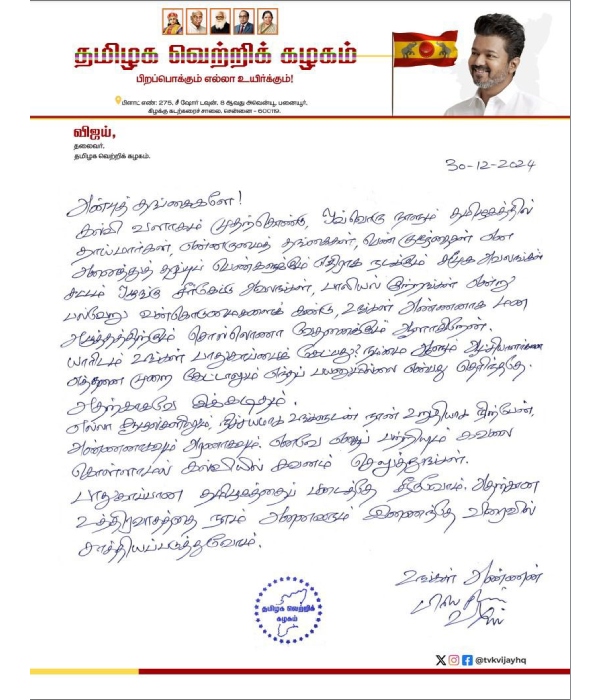 தமிழக வெற்றிக் கழகம்
பிறப்பொக்கும் எல்லா உயிர்க்கும்!
பிளாட் எண்: 275, சீ ஷோர் டவுன், 8 ஆவது அவென்யூ, பனையூர்,
கிழக்கு கடற்கரைச் சாலை, சென்னை - 600119.
விஜய்,
தலைவர்,
தமிழக வெற்றிக் கழகம்.
30-12-2024
அன்புத் தங்கைகளே!
கல்வி வளாகம் முதற்கொண்டு, ஒவ்வொரு நாளும் தமிழகத்தில்
தாய்மார்கள், என்னருமைத் தங்கைகள், பெண் குழந்தைகள் என
அனைத்துத் தரப்புப் பெண்களுக்கும் எதிராக நடக்கும் சமூக அவலங்கள்
சட்டம் ஒழுங்கு சீர்கேட்டு அவலங்கள், பாலியல் குற்றங்கள் என்று
பல்வேறு வன்கொடுமைகளைக் கண்டு, உங்கள் அண்ணனாக மன
அழுத்தத்திற்கும் சொல்லொணா வேதனைக்கும் ஆளாகிறேன்.
யாரிடம் உங்கள் பாதுகாப்பைக் கேட்பது? நம்மை ஆளும் ஆட்சியாளர்களை
எத்தனை முறை கேட்டாலும் எந்தப் பயனுமில்லை என்பது தெரிந்ததே.
அதற்காகவே இக்கடிதம்.
எல்லா சூழல்களிலும், நிச்சயமாக உங்களுடன் நான் உறுதியாக நிற்பேன்,
அண்ணனாகவும் அரணாகவும். எனவே எதைப் பற்றியும் கவலை
கொள்ளாமல் கல்வியில் கவனம் செலுத்துங்கள்.
பாதுகாப்பான தமிழகத்தைப் படைத்தே தீருவோம். அதற்கான
உத்திரவாதத்தை நாம் அனைவரும் இணைந்தே விரைவில்
சாத்தியப்படுத்துவோம்.
உங்கள் அண்ணன்
விஜய்
தமிழக வெற்றிக்
கழகம்
@tvkvijayhq